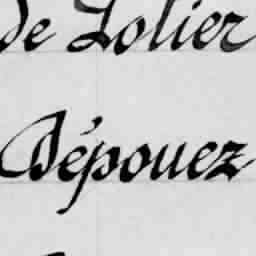 de Lolier
Dépouez